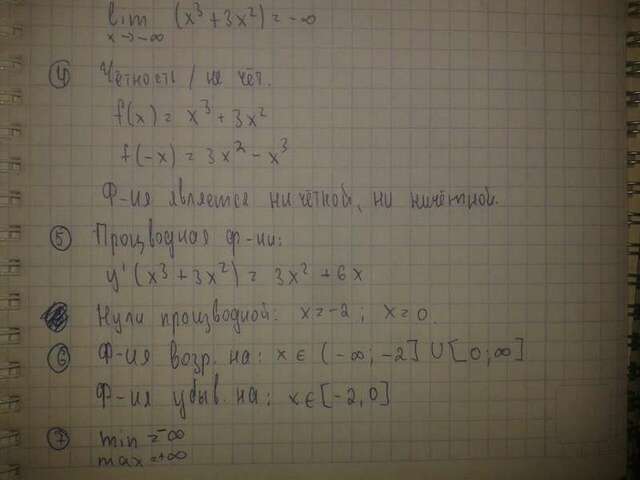 lim (x³ + 3x²) = -∞
x→-∞
④ Чётность / не чёт.
f(x) = x³ + 3x²
f(-x) = 3x² - x³
Ф-ия является ни чёткой, ни ничётной.
⑤ Производная ф-ии:
y'(x³ + 3x²) = 3x² + 6x
Нули производной: x = -2; x = 0.
⑥ Ф-ия возр. на: x ∈ (-∞; -2] ∪ [0; ∞]
Ф-ия убыв. на: x ∈ [-2, 0]
⑦ min = -∞
max = +∞